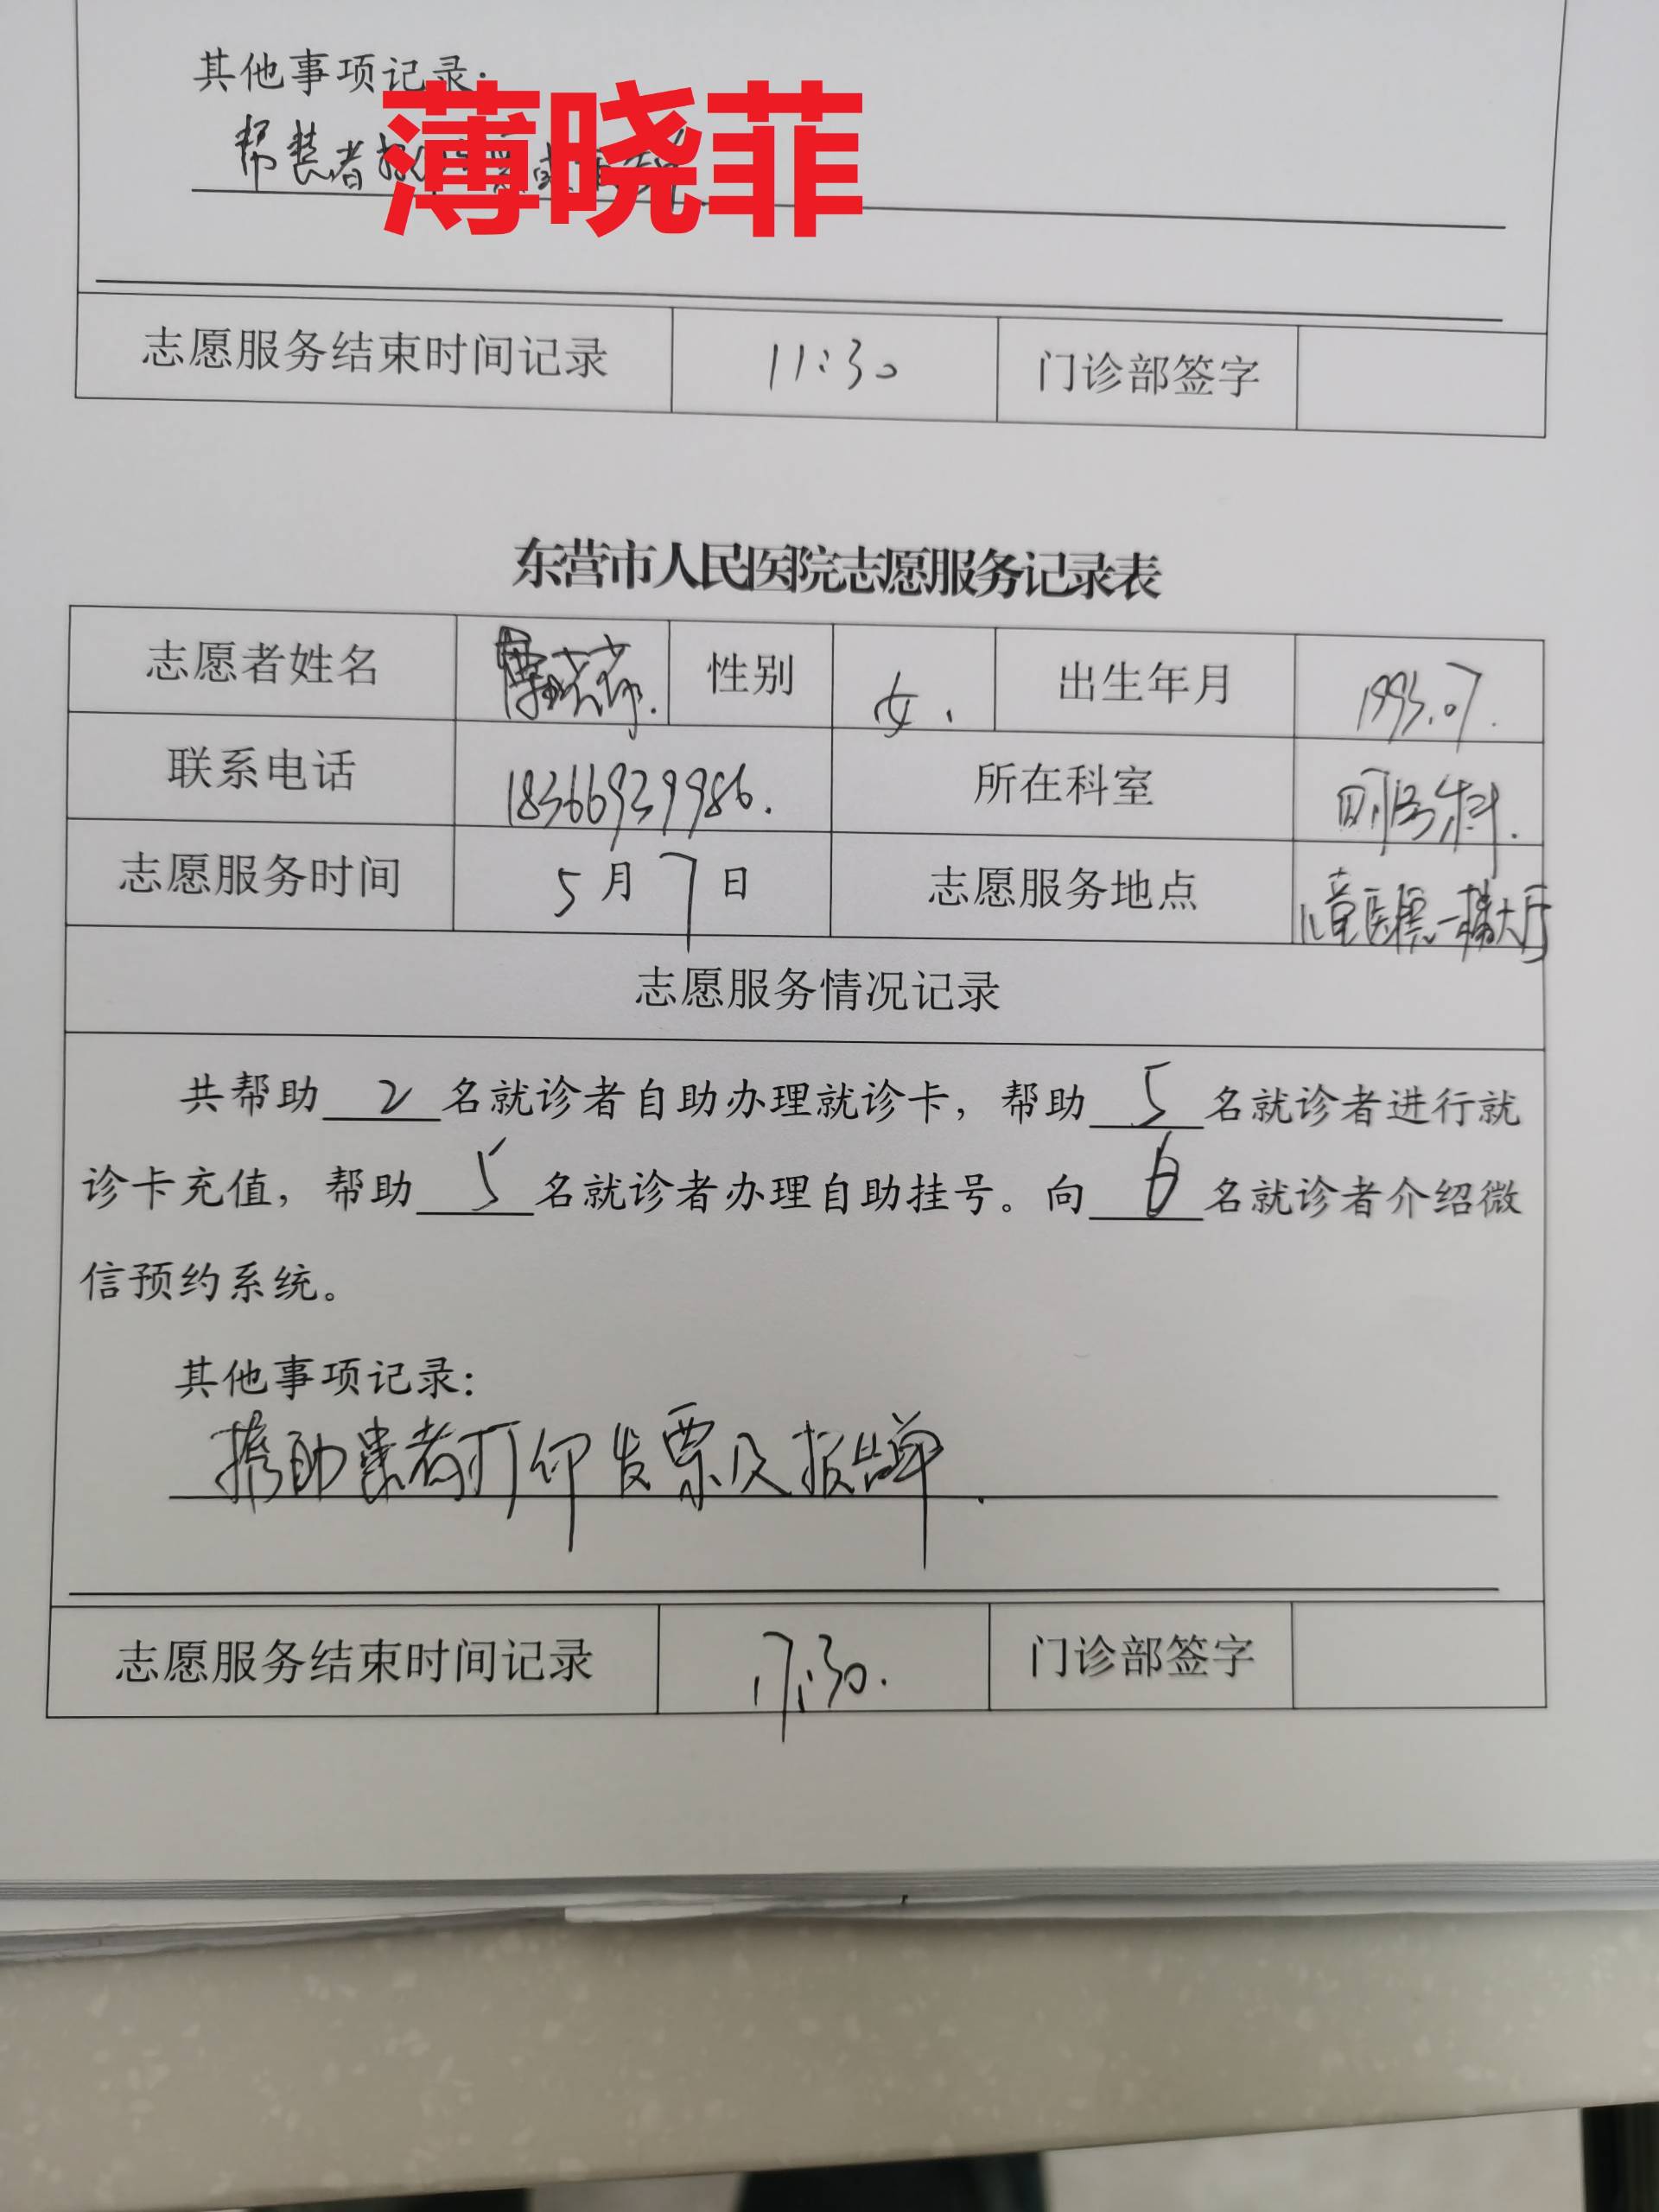 其他事项记录:
薄晓菲
帮患者
志愿服务结束时间记录 11:30 门诊部签字
东营市人民医院志愿服务记录表
志愿者姓名 薄晓菲. 性别 女. 出生年月 1993.07.
联系电话 18366939986. 所在科室 科.
志愿服务时间 5月7日 志愿服务地点 儿童医院一楼大厅
志愿服务情况记录
共帮助2名就诊者自助办理就诊卡，帮助5名就诊者进行就
诊卡充值，帮助5名就诊者办理自助挂号。向6名就诊者介绍微
信预约系统。
其他事项记录:
携助患者打印发票及报告单.
志愿服务结束时间记录 17:30. 门诊部签字